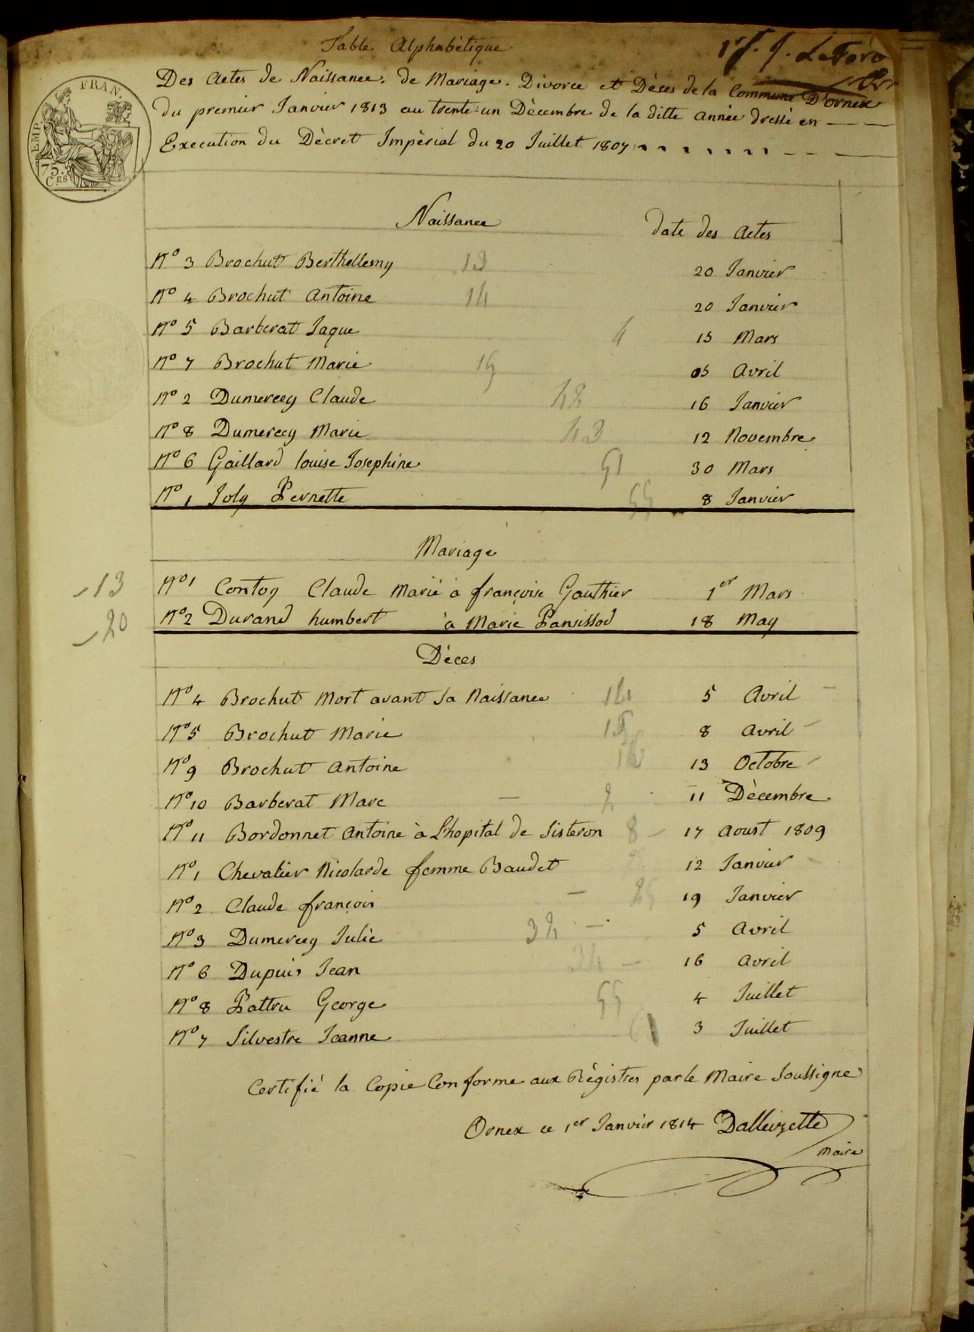 Table Alphabétique
Des Actes de Naissance, de Mariage, Divorce et Décès de la Commune D'ornex
du premier Janvier 1813 au trente-un Décembre de la ditte Année dressé en
Execution du Décret Impérial du 20 Juillet 1807
EMP. FRAN.
75 Ces
Naissance date des Actes
No 3 Brochut Berthellemy 13 20 Janvier
No 4 Brochut Antoine 14 20 Janvier
No 5 Barberat Jaque 4 15 Mars
No 7 Brochut Marie 15 05 Avril
No 2 Dumerecy Claude 42 16 Janvier
No 8 Dumerecy Marie 43 12 Novembre
No 6 Gaillard louise Josephine 51 30 Mars
No 1 Joly Pernette 55 8 Janvier
Mariage
13 No 1 Contoy Claude Marié a françoise Gauthier 1er Mars
20 No 2 Durand humbert à Marie Panissod 18 May
Déces
No 4 Brochut Mort avant Sa Naissance 14 5 Avril
No 5 Brochut Marie 15 8 Avril
No 9 Brochut Antoine 16 13 Octobre
No 10 Barberat Marc 2 11 Décembre
No 11 Bordonnet Antoine à L'hopital de Sisteron 8 17 Aoust 1809
No 1 Chevalier Nicolarde femme Baudet 12 Janvier
No 2 Claude françois 25 19 Janvier
No 3 Dumerecy Julie 32 5 Avril
No 6 Dupuis Jean 34 16 Avril
No 8 Pattru George 55 4 Juillet
No 7 Silvestre Jeanne 61 3 Juillet
Certifié la Copie Conforme aux Régistres par le Maire Soussigné
Ornex ce 1er Janvier 1814 Dallevzette
Maire